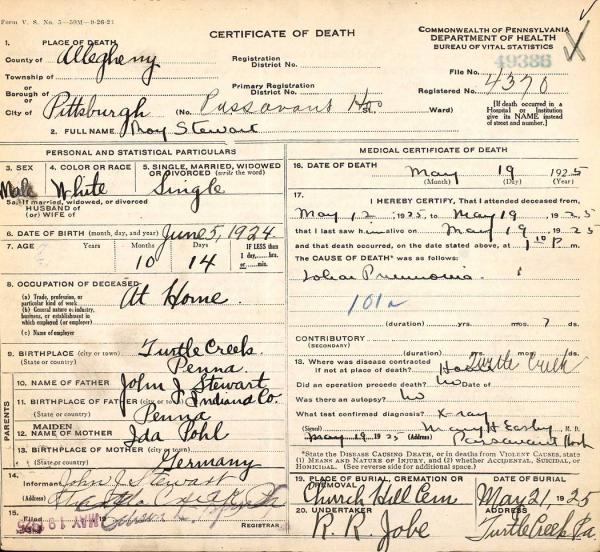 Form V. S. No. 5—50M—9-26-23
CERTIFICATE OF DEATH
COMMONWEALTH OF PENNSYLVANIA
DEPARTMENT OF HEALTH
BUREAU OF VITAL STATISTICS
1. PLACE OF DEATH
County of Allegheny
Registration District No.
49386
File No.
Township of
or
Borough of
or
Primary Registration District No.
Registered No. 4370
City of Pittsburgh (No. Passavant Hos St. Ward)
[If death occurred in a Hospital or Institution give its NAME instead of street and number.]
2. FULL NAME Roy Stewart
PERSONAL AND STATISTICAL PARTICULARS
3. SEX Male
4. COLOR OR RACE White
5. SINGLE, MARRIED, WIDOWED OR DIVORCED (write the word) Single
5a. If married, widowed, or divorced
HUSBAND of
(or) WIFE of
6. DATE OF BIRTH (month, day, and year) June 5, 1924
7. AGE Years Months 10 Days 14 IF LESS than 1 day, hrs. or min.
8. OCCUPATION OF DECEASED
(a) Trade, profession, or particular kind of work At Home.
(b) General nature of industry, business, or establishment in which employed (or employer)
(c) Name of employer
9. BIRTHPLACE (city or town) Turtle Creek.
(State or country) Penna.
PARENTS
10. NAME OF FATHER John J. Stewart
11. BIRTHPLACE OF FATHER (city or town) Indiana Co.
(State or country) Penna
12. MAIDEN NAME OF MOTHER Ida Pohl
13. BIRTHPLACE OF MOTHER (city or town)
(State or country) Germany
14. Informant John J Stewart
(Address) Turtle Creek Pa
15. Filed MAY 19 1925
REGISTRAR
MEDICAL CERTIFICATE OF DEATH
16. DATE OF DEATH May 19 1925
(Month) (Day) (Year)
17. I HEREBY CERTIFY, That I attended deceased from
May 12 1925 to May 19 1925
that I last saw him alive on May 19 1925
and that death occurred, on the date stated above, at 1 10 P m.
The CAUSE OF DEATH* was as follows:
Lobar Pneumonia
101a
(duration) yrs. mos. 7 ds.
CONTRIBUTORY
(SECONDARY)
(duration) yrs. mos. ds.
18. Where was disease contracted
if not at place of death? Home Turtle Creek
Did an operation precede death? No Date of
Was there an autopsy? No
What test confirmed diagnosis? X-ray
(Signed) Mary H. M. D.
May 19 1925 (Address) Passavant Hosp
*State the DISEASE CAUSING DEATH, or in deaths from VIOLENT CAUSES, state (1) MEANS AND NATURE OF INJURY, and (2) whether ACCIDENTAL, SUICIDAL, or HOMICIDAL. (See reverse side for additional space.)
19. PLACE OF BURIAL, CREMATION OR REMOVAL Church Hill Cem
DATE OF BURIAL May 21, 1925
20. UNDERTAKER R. R. Jobe
Turtle Creek Pa.